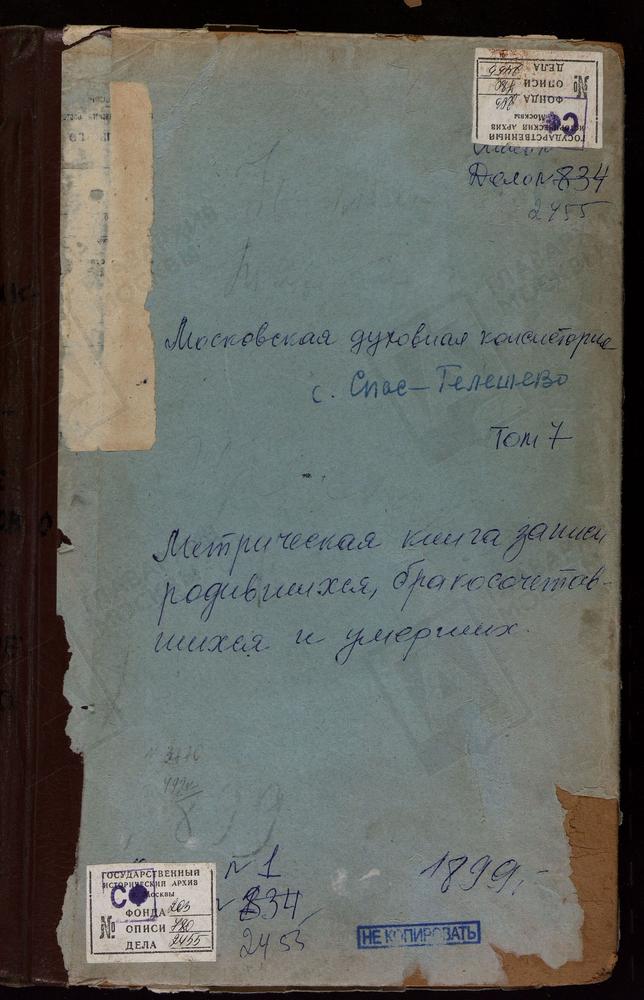 ГОСУДАРСТВЕННЫЙ
ИСТОРИЧЕСКИЙ АРХИВ
г. Москвы
СФ
ФОНДА 203
№ ОПИСИ 780
ДЕЛА 2455
Дело № 834
2455
Московская духовная консистория
с. Спас-Телешево
Том 7
Метрическая книга записи
родившихся, бракосочетав-
шихся и умерших.
№1
1899.
834
2455
ГОСУДАРСТВЕННЫЙ
ИСТОРИЧЕСКИЙ АРХИВ
г. Москвы
СФ
ФОНДА 203
№ ОПИСИ 780
ДЕЛА 2455
НЕ КОПИРОВАТЬ